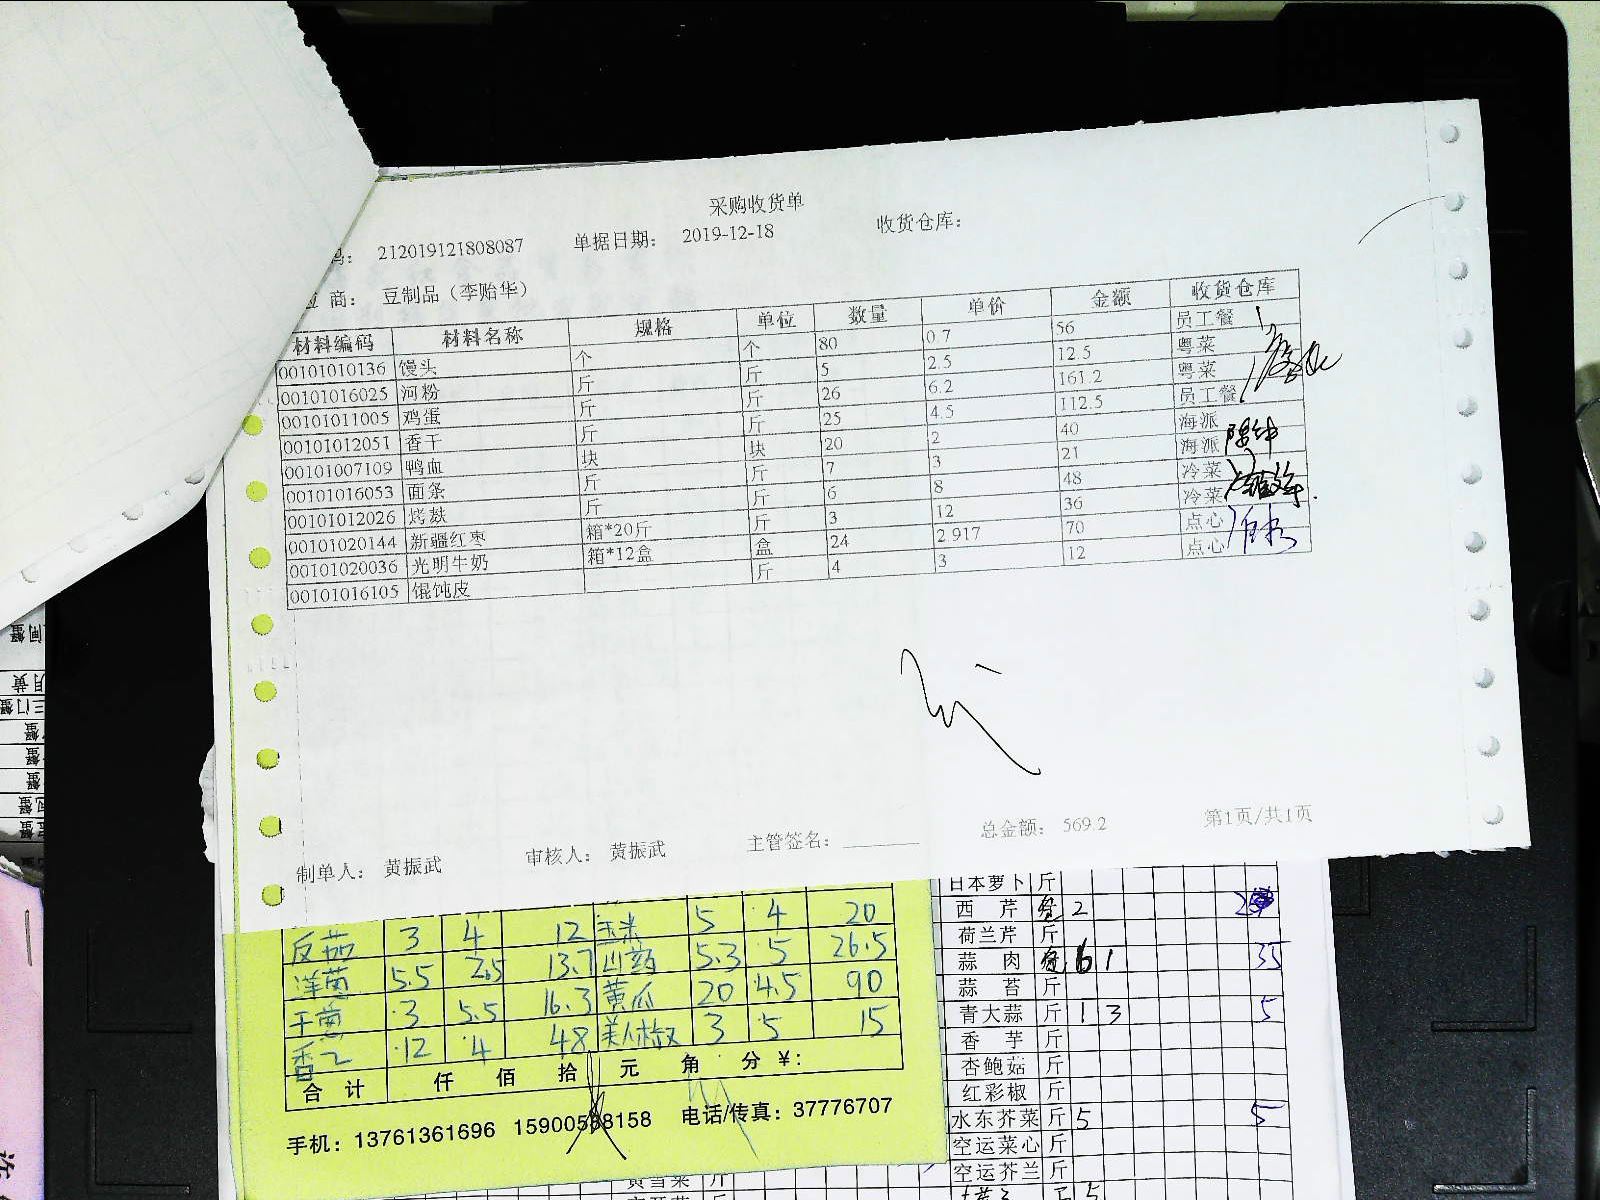 采购收货单
码： 212019121808087 单据日期： 2019-12-18 收货仓库：
应 商： 豆制品（李贻华）
材料编码 材料名称 规格 单位 数量 单价 金额 收货仓库
00101010136 馒头 个 个 80 0.7 56 员工餐
00101016025 河粉 斤 斤 5 2.5 12.5 粤菜
00101011005 鸡蛋 斤 斤 26 6.2 161.2 粤菜
00101012051 香干 斤 斤 25 4.5 112.5 员工餐
00101007109 鸭血 块 块 20 2 40 海派
00101016053 面条 斤 斤 7 3 21 海派
00101012026 烤麸 斤 斤 6 8 48 冷菜
00101020144 新疆红枣 箱*20斤 斤 3 12 36 冷菜
00101020036 光明牛奶 箱*12盒 盒 24 2.917 70 点心
00101016105 馄饨皮 斤 4 3 12 点心
总金额： 569.2 第1页/共1页
制单人： 黄振武 审核人： 黄振武 主管签名：
反茄 3 4 12 玉米 5 4 20
洋茵 5.5 2.5 13.7 山药 5.3 5 26.5
干茵 3 5.5 16.3 黄瓜 20 4.5 90
12 4 48 美人椒 3 5 15
合 计 仟 佰 拾 元 角 分 ¥:
手机：13761361696 15900598158 电话/传真：37776707
日本萝卜 斤
西 芹 2
荷兰芹 斤
蒜 肉 61 35
蒜 苔 斤
青大蒜 斤 1 3 5
香 芋 斤
杏鲍菇 斤
红彩椒 斤
水东芥菜 斤 5 5
空运菜心 斤
空运芥兰 斤
黄雪菜 斤